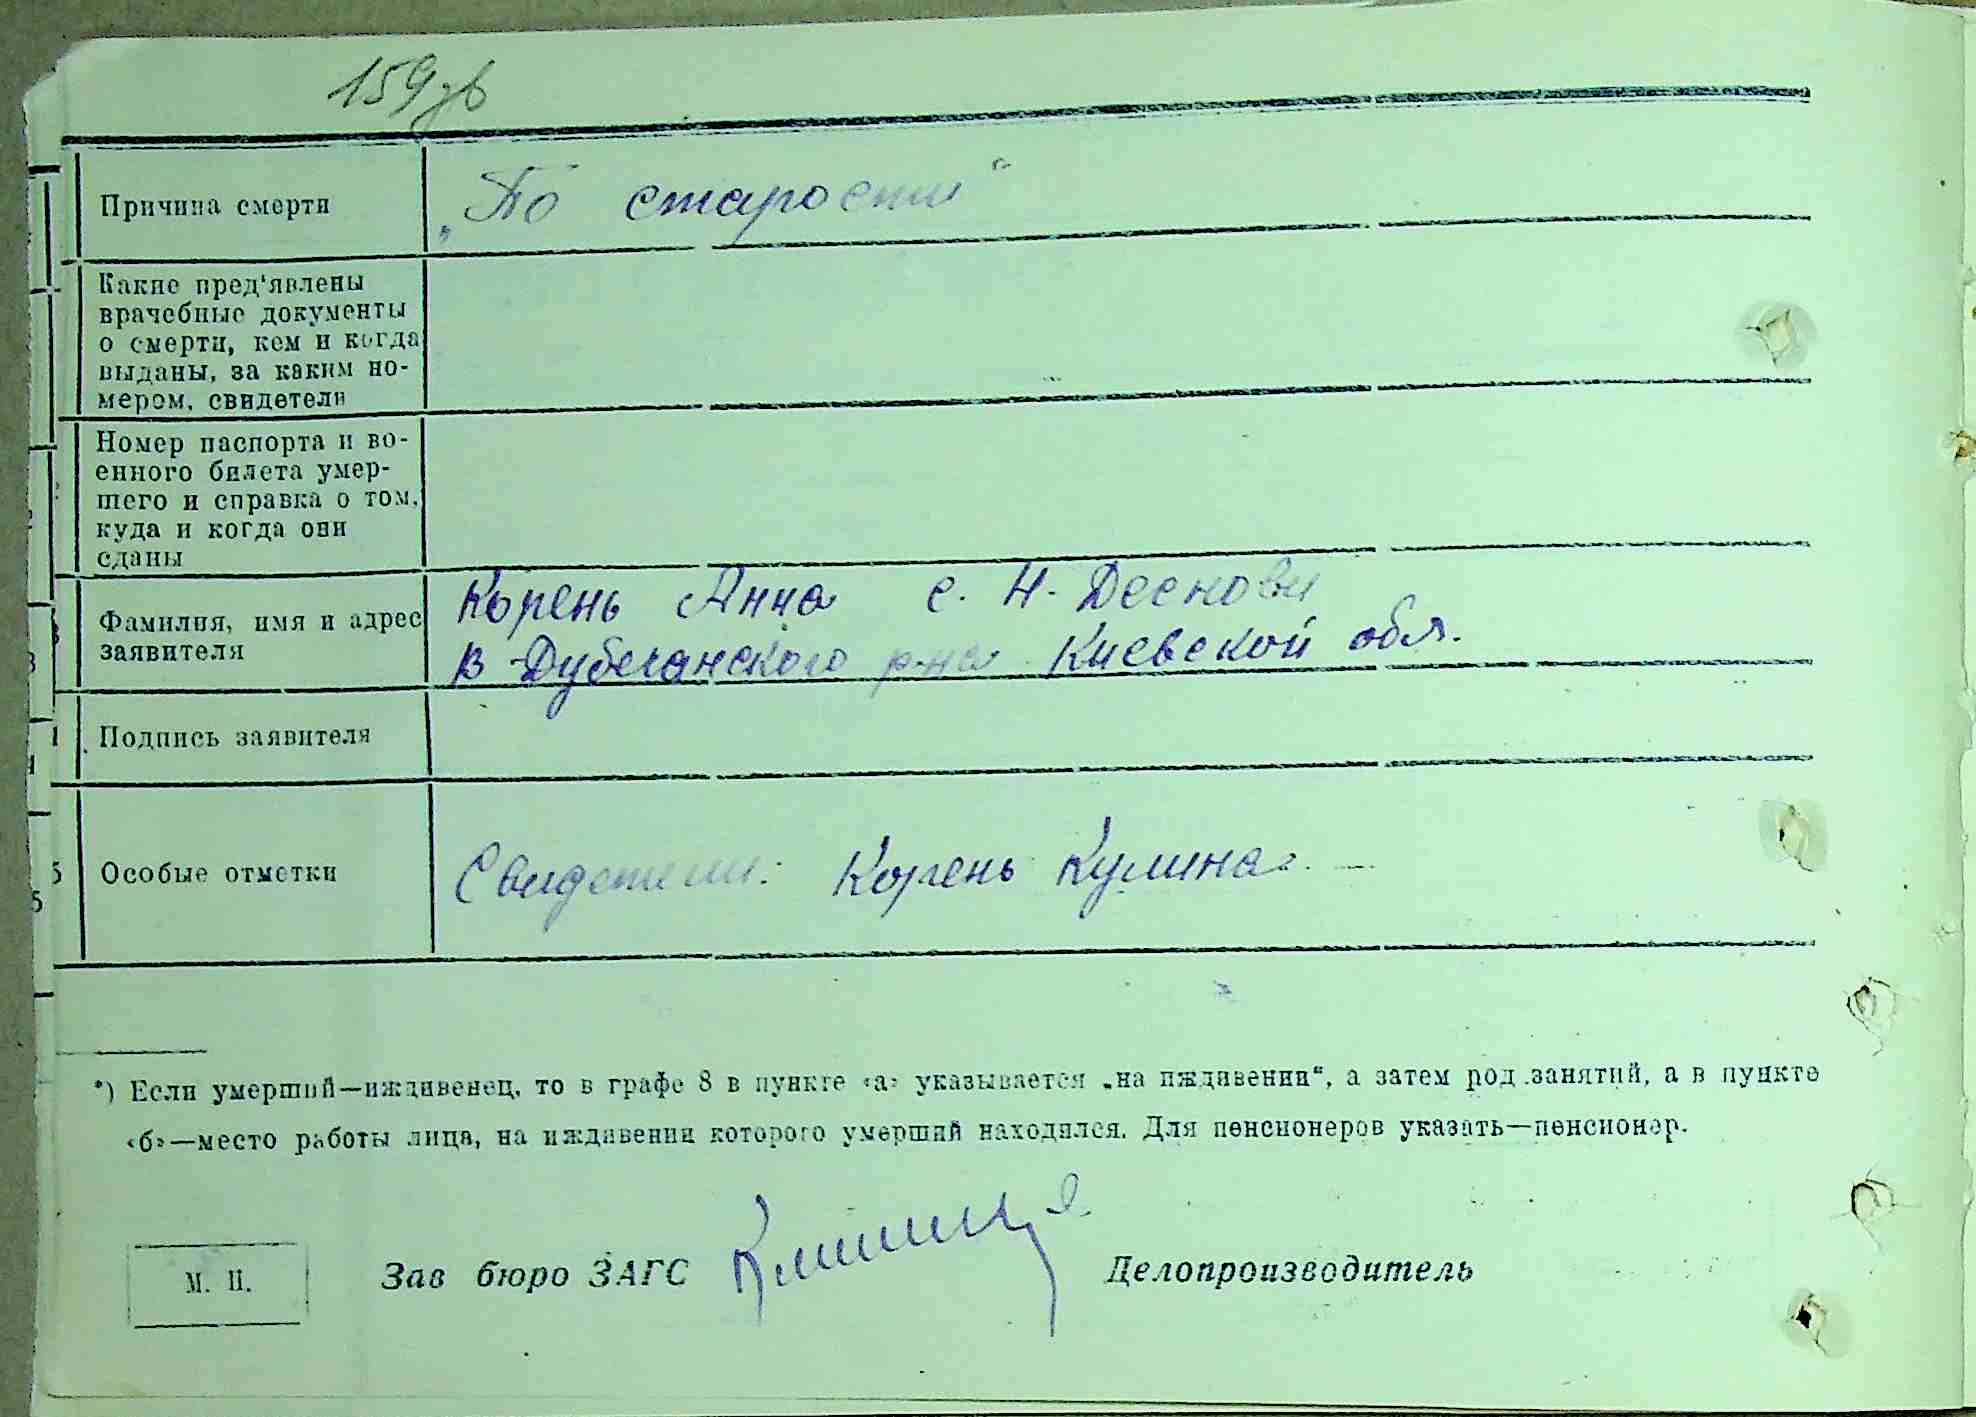 159 зв
Причина смерти
„По старости“
Какие пред‘явлены
врачебные документы
о смерти, кем и когда
выданы, за каким но-
мером, свидетели
Номер паспорта и во-
енного билета умер-
шего и справка о том,
куда и когда они
сданы
Фамилия, имя и адрес
заявителя
Корень Анна с. Н-
В-Дубечанского р-на Киевской обл.
Подпись заявителя
Особые отметки
Свидетели: Корень Кулина
*) Если умерший—иждивенец, то в графе 8 в пункте «а» указывается „на иждивении“, а затем род занятий, а в пункте
«б»—место работы лица, на иждивении которого умерший находился. Для пенсионеров указать—пенсионер.
М. П.
Зав бюро ЗАГС
Делопроизводитель